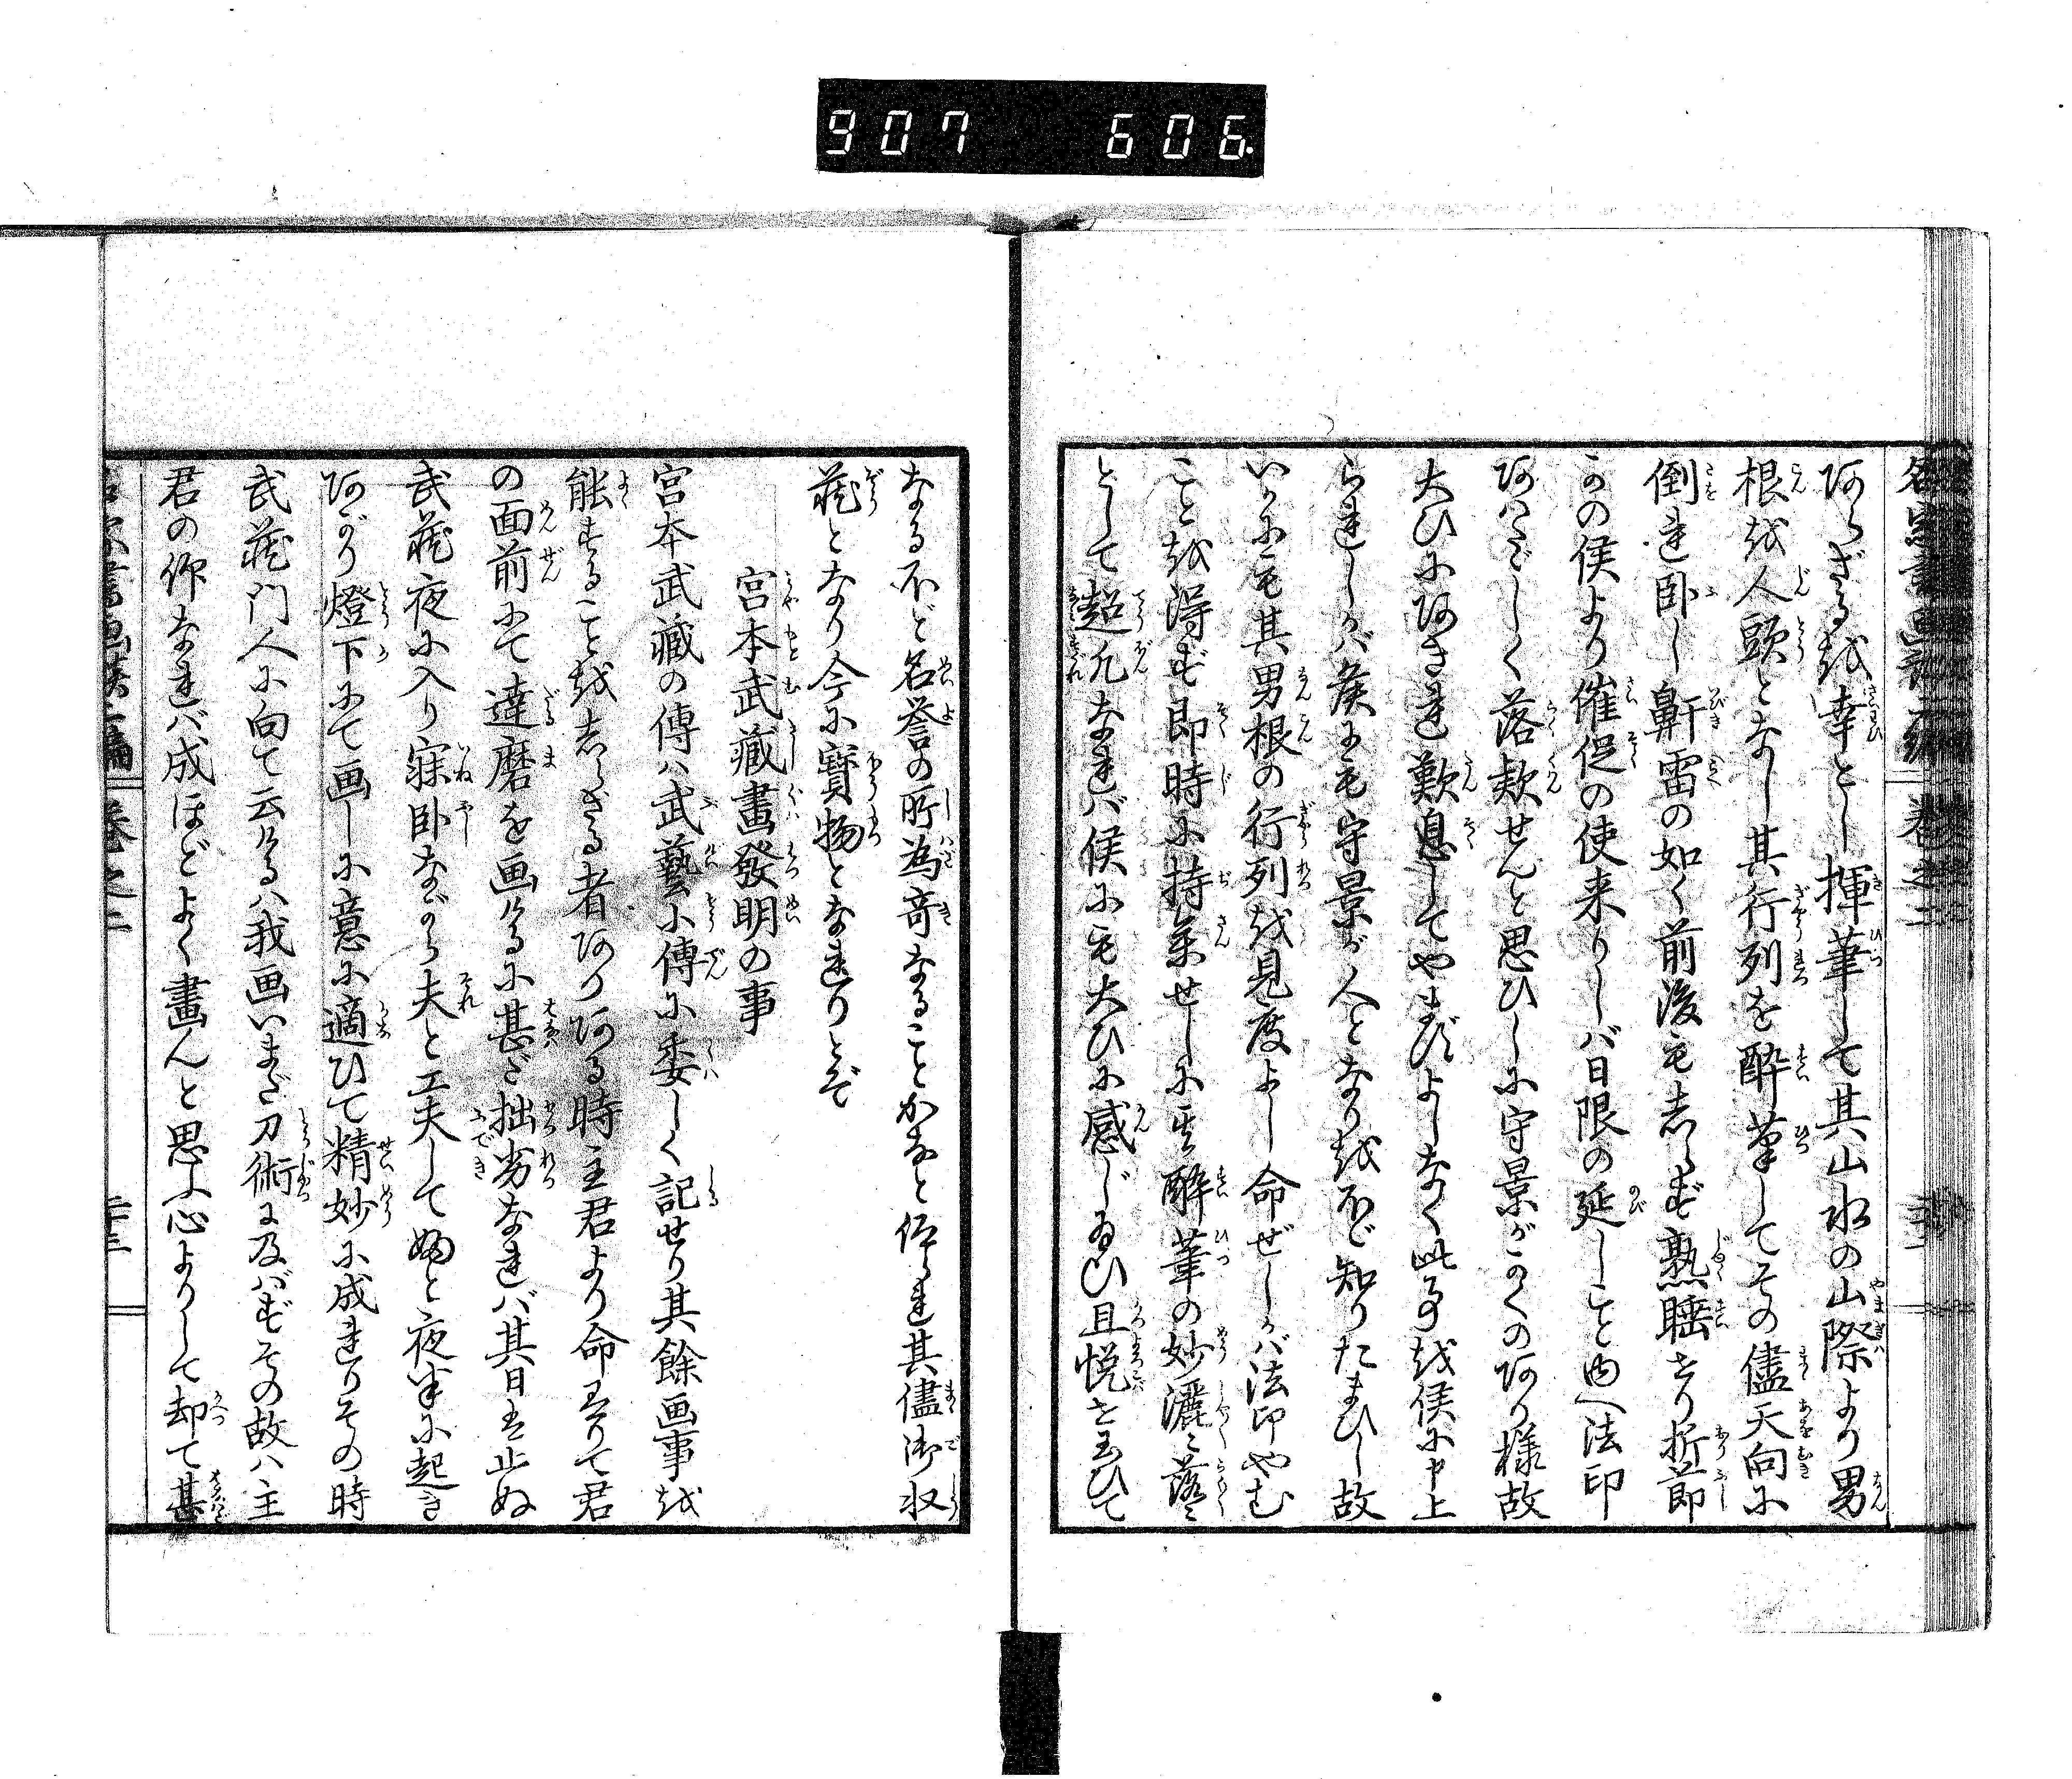 907 606.
あらざるを幸とし揮筆して其山水の山際より男
根を人頭となし其行列を酔筆してその儘天向に
倒れ臥し鼾雷の如く前後もしらず熟睡せり折節
かの侯より催促の使来りしバ日限の延しこと由へ法印
あハたゞしく落款せんと思ひしに守景がかくのあり様故
大ひにあきれ歎息してやまずよしなく此事を侯に申上
られしかバ侯にも守景が人となりをほど知りたまひし故
いかにも其男根の行列を見度よし命ぜしかバ法印やむ
ことを得ず即時に持参せしに其酔筆の妙灑々落々
として超凡なれバ侯にも大ひに感じ給ひ且悦せ玉ひて
なるほど名誉の所為奇なることかなと仰られ其儘御収
蔵となり今に寳物となれりとぞ
宮本武蔵畫發明の事
宮本武蔵の傳ハ武藝小傳に委しく記せり其餘画事を
能することをしらざる者ありある時主君より命ありて君
の面前にて達磨を画けるに甚だ拙劣なれバ其日は止ぬ
武蔵夜に入り寐臥ながら夫と工夫して[]と夜半に起き
あがり燈下にて画しに意に適ひて精妙に成れりその時
武蔵門人に向て云けるハ我画いまだ刀術に及バずその故ハ主
君の仰なれバ成ほどよく畫んと思ふ心よりして却て甚
名家書画談二編 巻之二 二十三